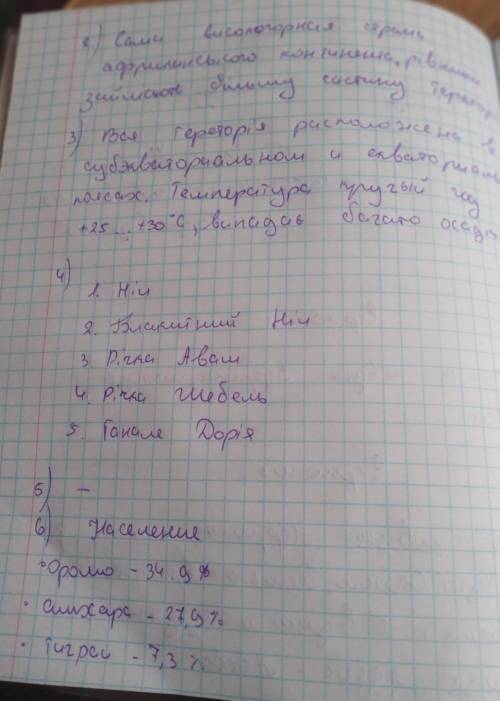 2) Сама високогорная страна
африканського континента, рівнини
займають більшу частину теретор
3) Вся тереторія расположена в
субэкваториальном и екваториаль
поясах. Температура кругый год
+25...+30°С, випадає багато осад
4)
1. Ніл
2. Блакитний Ніл
3. Річка Аваш
4. Річка Шебель
5. Ганале Дорія
5) –
6) Население
• Оромо - 34.9 %
• амхара - 27,9 %
• тиграи - 7,3 %